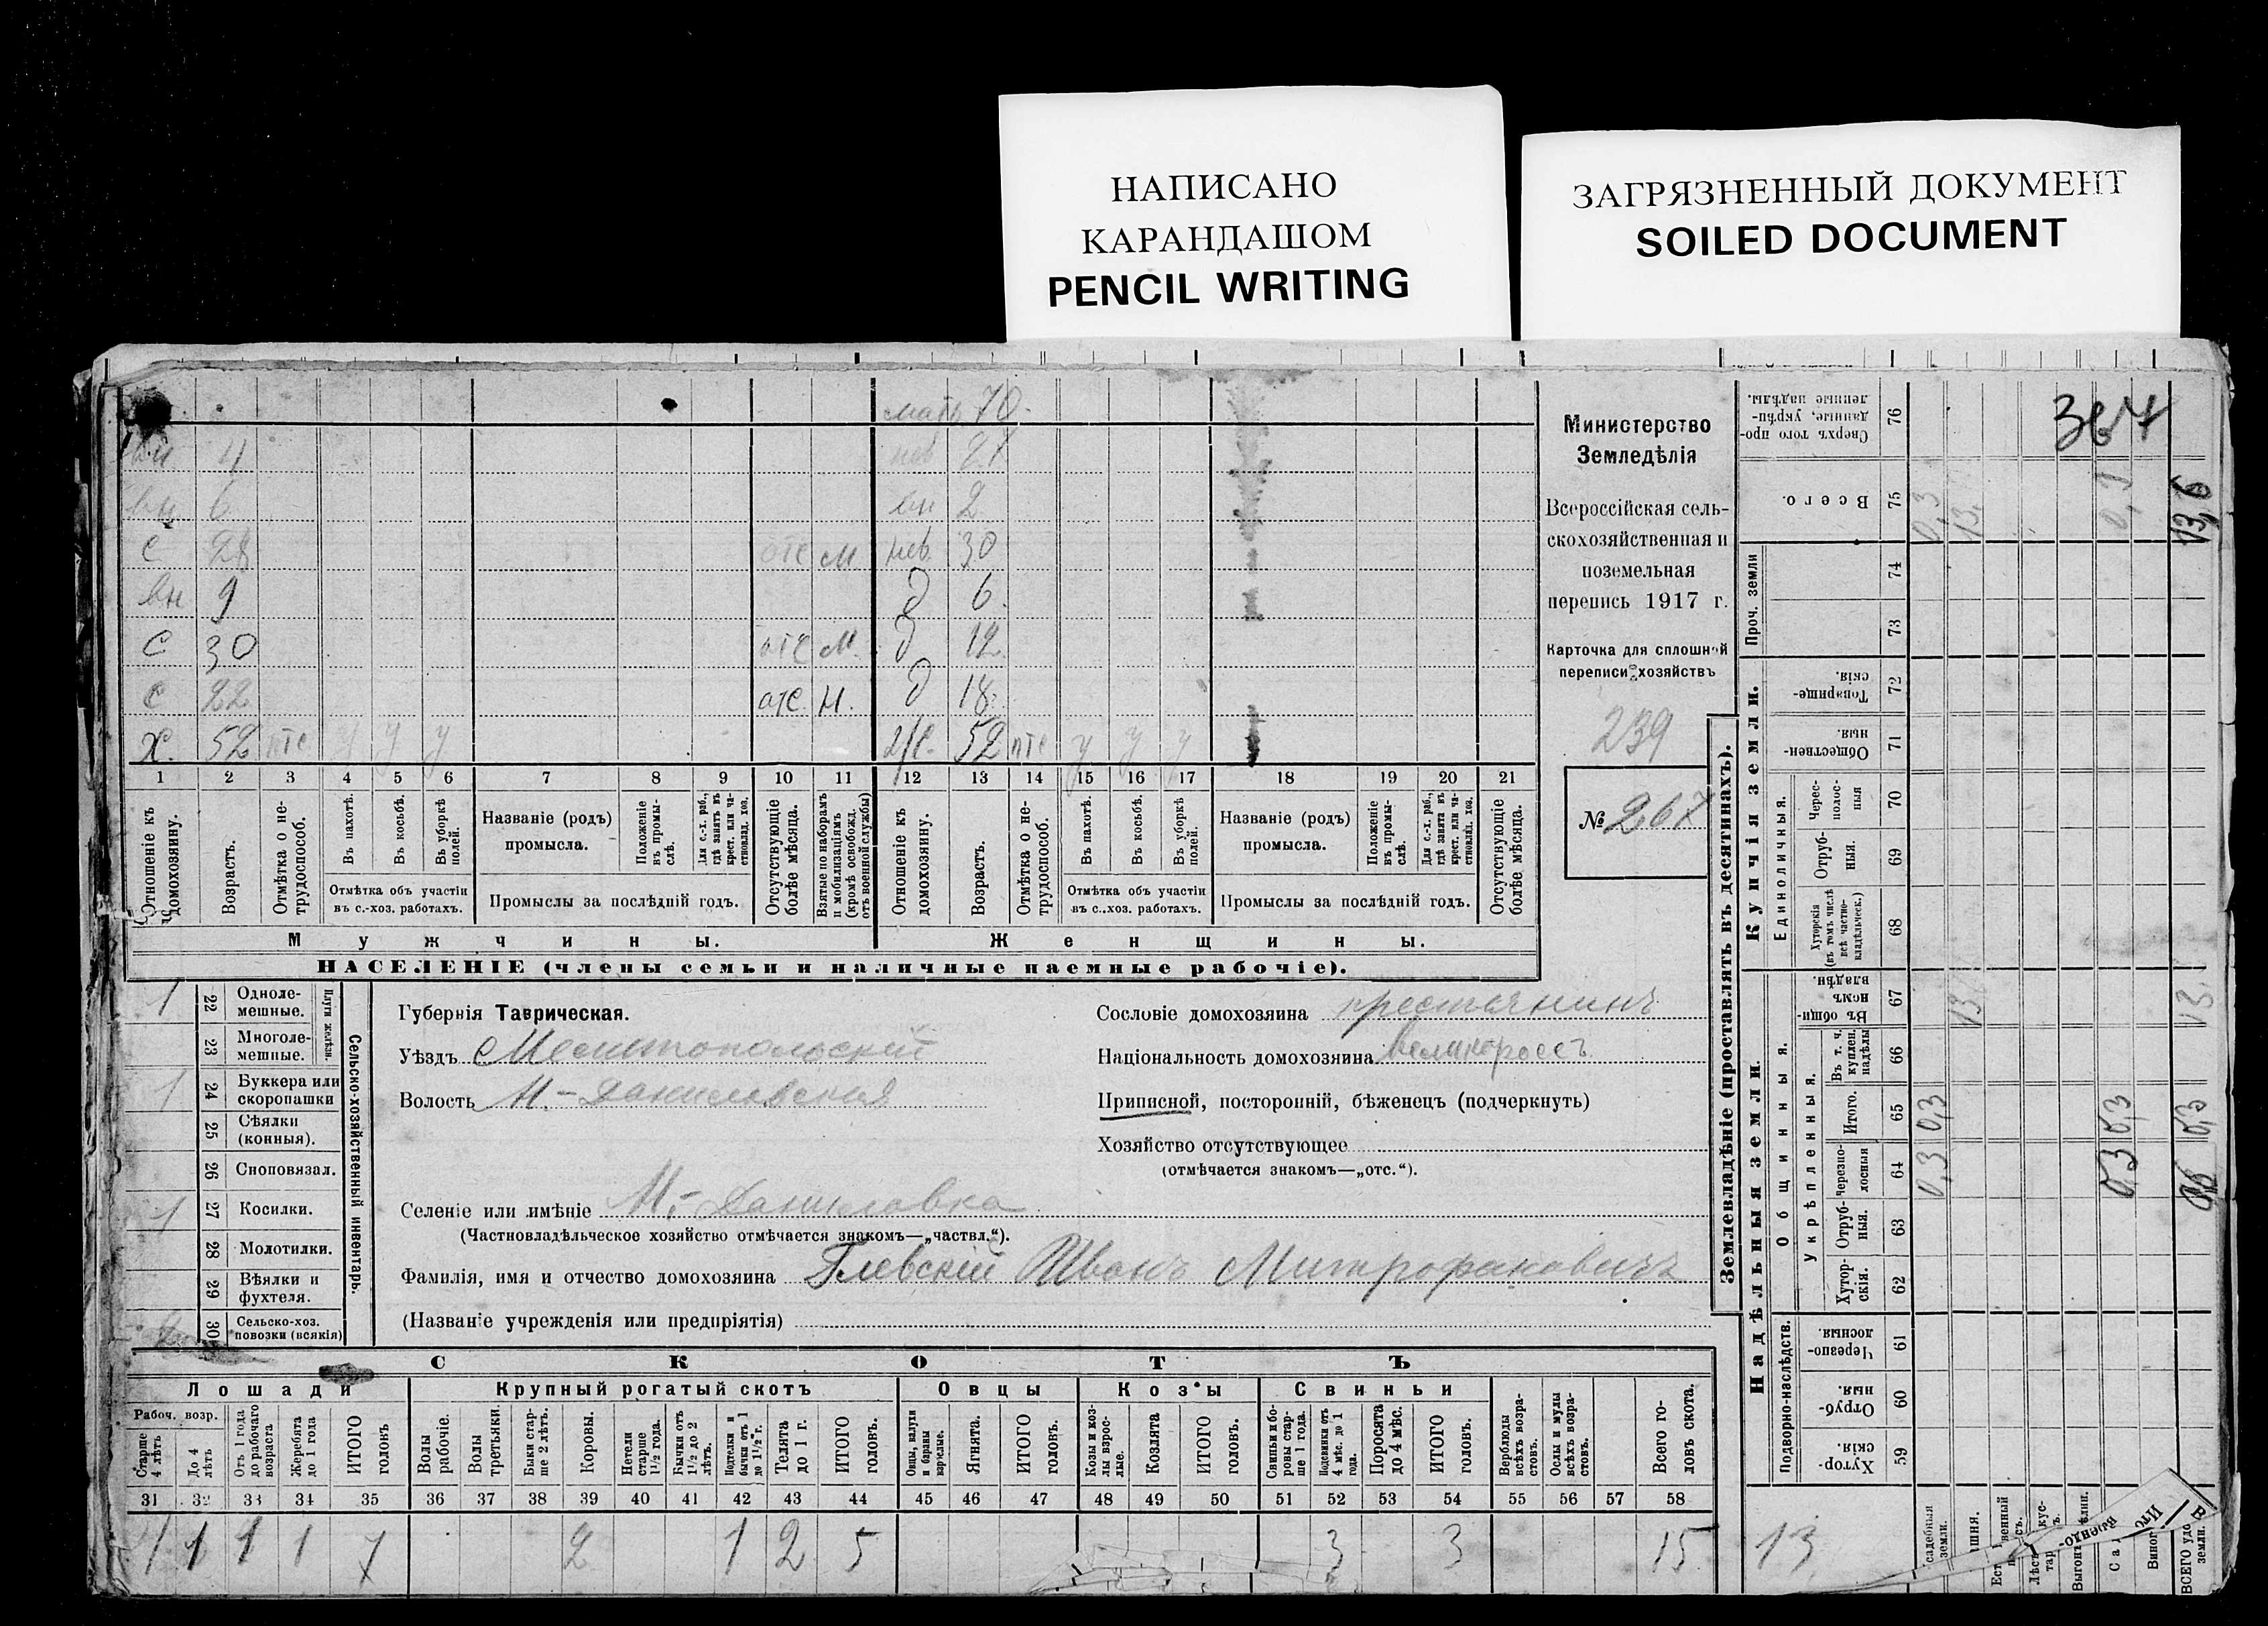 НАПИСАНО
КАРАНДАШОМ
PENCIL WRITING
ЗАГРЯЗНЕННЫЙ ДОКУМЕНТ
SOILED DOCUMENT
мать 70
4 нев 21
вн 6 вн 2
с 28 отс м. нев 30
вн 9 д 6
с 30 отс м. д 12
с 22 отс м. д 18
х. 52 у у 52 у у у
1 2 3 4 5 6 7 8 9 10 11 12 13 14 15 16 17 18 19 20 21
Отношеніе къ домохозяину.
Возрастъ.
Отмѣтка о нетрудоспособ.
Въ пахотѣ.
Въ косьбѣ.
Въ уборкѣ полей.
Отмѣтка объ участіи
въ с.-хоз. работахъ.
Названіе (родъ)
промысла.
Положеніе въ промыслѣ.
Для с.-х. раб., гдѣ занятъ въ крест. или частновлад. хоз.
Промыслы за послѣдній годъ.
Отсутствующіе болѣе мѣсяца.
Взятые по наборамъ и мобилизаціямъ (кромѣ освобожд. отъ военной службы)
Отношеніе къ домохозяину.
Возрастъ.
Отмѣтка о нетрудоспособ.
Въ пахотѣ.
Въ косьбѣ.
Въ уборкѣ полей.
Отмѣтка объ участіи
въ с.-хоз. работахъ.
Названіе (родъ)
промысла.
Положеніе въ промыслѣ.
Для с.-х. раб., гдѣ занята въ крест. или частновлад. хоз.
Промыслы за послѣдній годъ.
Отсутствующіе болѣе мѣсяца.
Мужчины. Женщины.
НАСЕЛЕНІЕ (члены семьи и наличные наемные рабочіе).
Министерство
Земледѣлія
Всероссійская сель-
скохозяйственная и
поземельная
перепись 1917 г.
Карточка для сплошной
переписи хозяйствъ
239
№ 267
1 22 Однолемешные.
23 Многолемешные.
Плуги желѣзн.
1 24 Буккера или скоропашки
25 Сѣялки (конныя).
26 Сноповязал.
1 27 Косилки.
28 Молотилки.
29 Вѣялки и фухтеля.
30 Сельско-хоз. повозки (всякія)
Сельско-хозяйственный инвентарь.
Губернія Таврическая.
Уѣздъ Мелитопольскій
Волость М.-Даниловская
Селеніе или имѣніе М.-Даниловка
(Частновладѣльческое хозяйство отмѣчается знакомъ—„частвл.“).
Фамилія, имя и отчество домохозяина Глевскій Иванъ Митрофановичъ
(Названіе учрежденія или предпріятія)
Сословіе домохозяина крестьянинъ
Національность домохозяина великороссъ
Приписной, посторонній, бѣженецъ (подчеркнуть)
Хозяйство отсутствующее
(отмѣчается знакомъ—„отс.“).
СКОТЪ
Лошади Крупный рогатый скотъ Овцы Козы Свиньи
Рабоч. возр.
Старше 4 лѣтъ
До 4 лѣтъ
Отъ 1 года до рабочаго возраста
Жеребята до 1 года
ИТОГО головъ
Волы рабочіе.
Волы третьяки.
Быки старше 2 лѣтъ.
Коровы.
Нетели старше 1½ года.
Бычки отъ 1½ до 2 лѣтъ.
Подтелки и бычки отъ 1 до 1½ г.
Телята до 1 г.
ИТОГО головъ.
Овцы, валухи и бараны взрослые.
Ягнята.
ИТОГО головъ.
Козы и козлы взрослые.
Козлята
ИТОГО головъ.
Свиньи и боровы старше 1 года.
Подсвинки отъ 4 мѣс. до 1 года.
Поросята до 4 мѣс.
ИТОГО головъ.
Верблюды всѣхъ возрастовъ.
Ослы и мулы всѣхъ возрастовъ.
Всего головъ скота.
31 32 33 34 35 36 37 38 39 40 41 42 43 44 45 46 47 48 49 50 51 52 53 54 55 56 57 58
4 1 1 1 7 2 1 2 5 3 3 15
Землевладѣніе (проставлять въ десятинахъ).
Надѣльныя земли. Купчія земли. Проч. земли
Подворно-наслѣдств.
Общинныя.
Укрѣпленныя.
Единоличныя.
Хуторскія. 59
Отрубныя. 60
Черезполосныя 61
Хуторскія. 62
Отрубныя. 63
Черезполосныя 64
Итого. 65
Въ т. ч. куплен. надѣлы 66
Въ общинномъ владѣн. 67
Хуторскія (въ томъ числѣ всѣ частновладѣльческ.) 68
Отрубныя. 69
Чересполосныя 70
Общественныя. 71
Товарищескія. 72
73
74
Всего. 75
Сверхъ того проданные, укрѣпленные надѣлы. 76
0,3 0,3 0,3
13 13
0,3 0,3
0,3 13 13,6
13